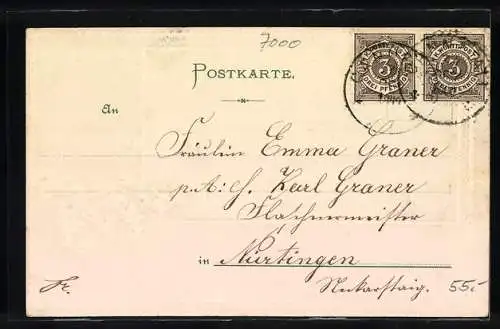 7000
POSTKARTE.
3
DREI PFENNIG
3
An
Fräulein Emma Graner
p. A: H. Karl Graner
Flaschnermeister
in Nürtingen
Neckarstaig.
Fr.
55.-